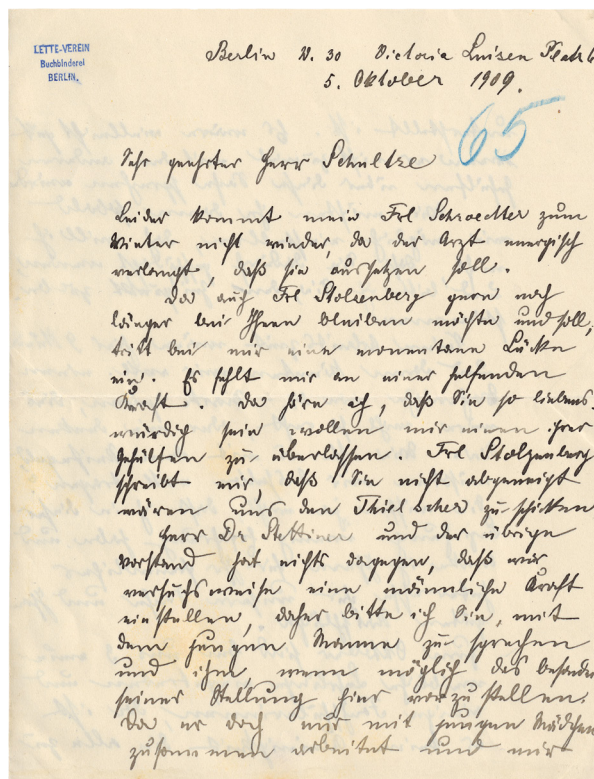 LETTE-VEREIN
Buchbinderei
BERLIN.
Berlin W. 30 Victoria Luisen Platz 6
5. Oktober 1909.
65
Sehr geehrter Herr Schultze
Leider kommt mein Frl Schroedter zum
Winter nicht wieder, da der Arzt energisch
verlangt, daß sie aussetzen soll.
Da auch Frl Stolzenberg gern noch
länger bei Ihnen bleiben möchte und soll,
tritt bei mir eine momentane Lücke
ein. Es fehlt mir an einer helfenden
Kraft. Da höre ich, daß Sie so liebens-
würdig sein wollen mir einen ihrer
Gehilfen zu überlassen. Frl Stolzenberg
schreibt mir, daß Sie nicht abgeneigt
wären uns den Thielscher zu schicken
Herr Dr Stettiner und der übrige
Vorstand hat nichts dagegen, daß wir
versuchsweise eine männliche Kraft
einstellen, daher bitte ich Sie, mit
dem jungen Manne zu sprechen
und ihm, wenn möglich das besonde
seiner Stellung hier vorzustellen.
Da er doch nur mit jungen Mädchen
zusammen arbeitet und mir